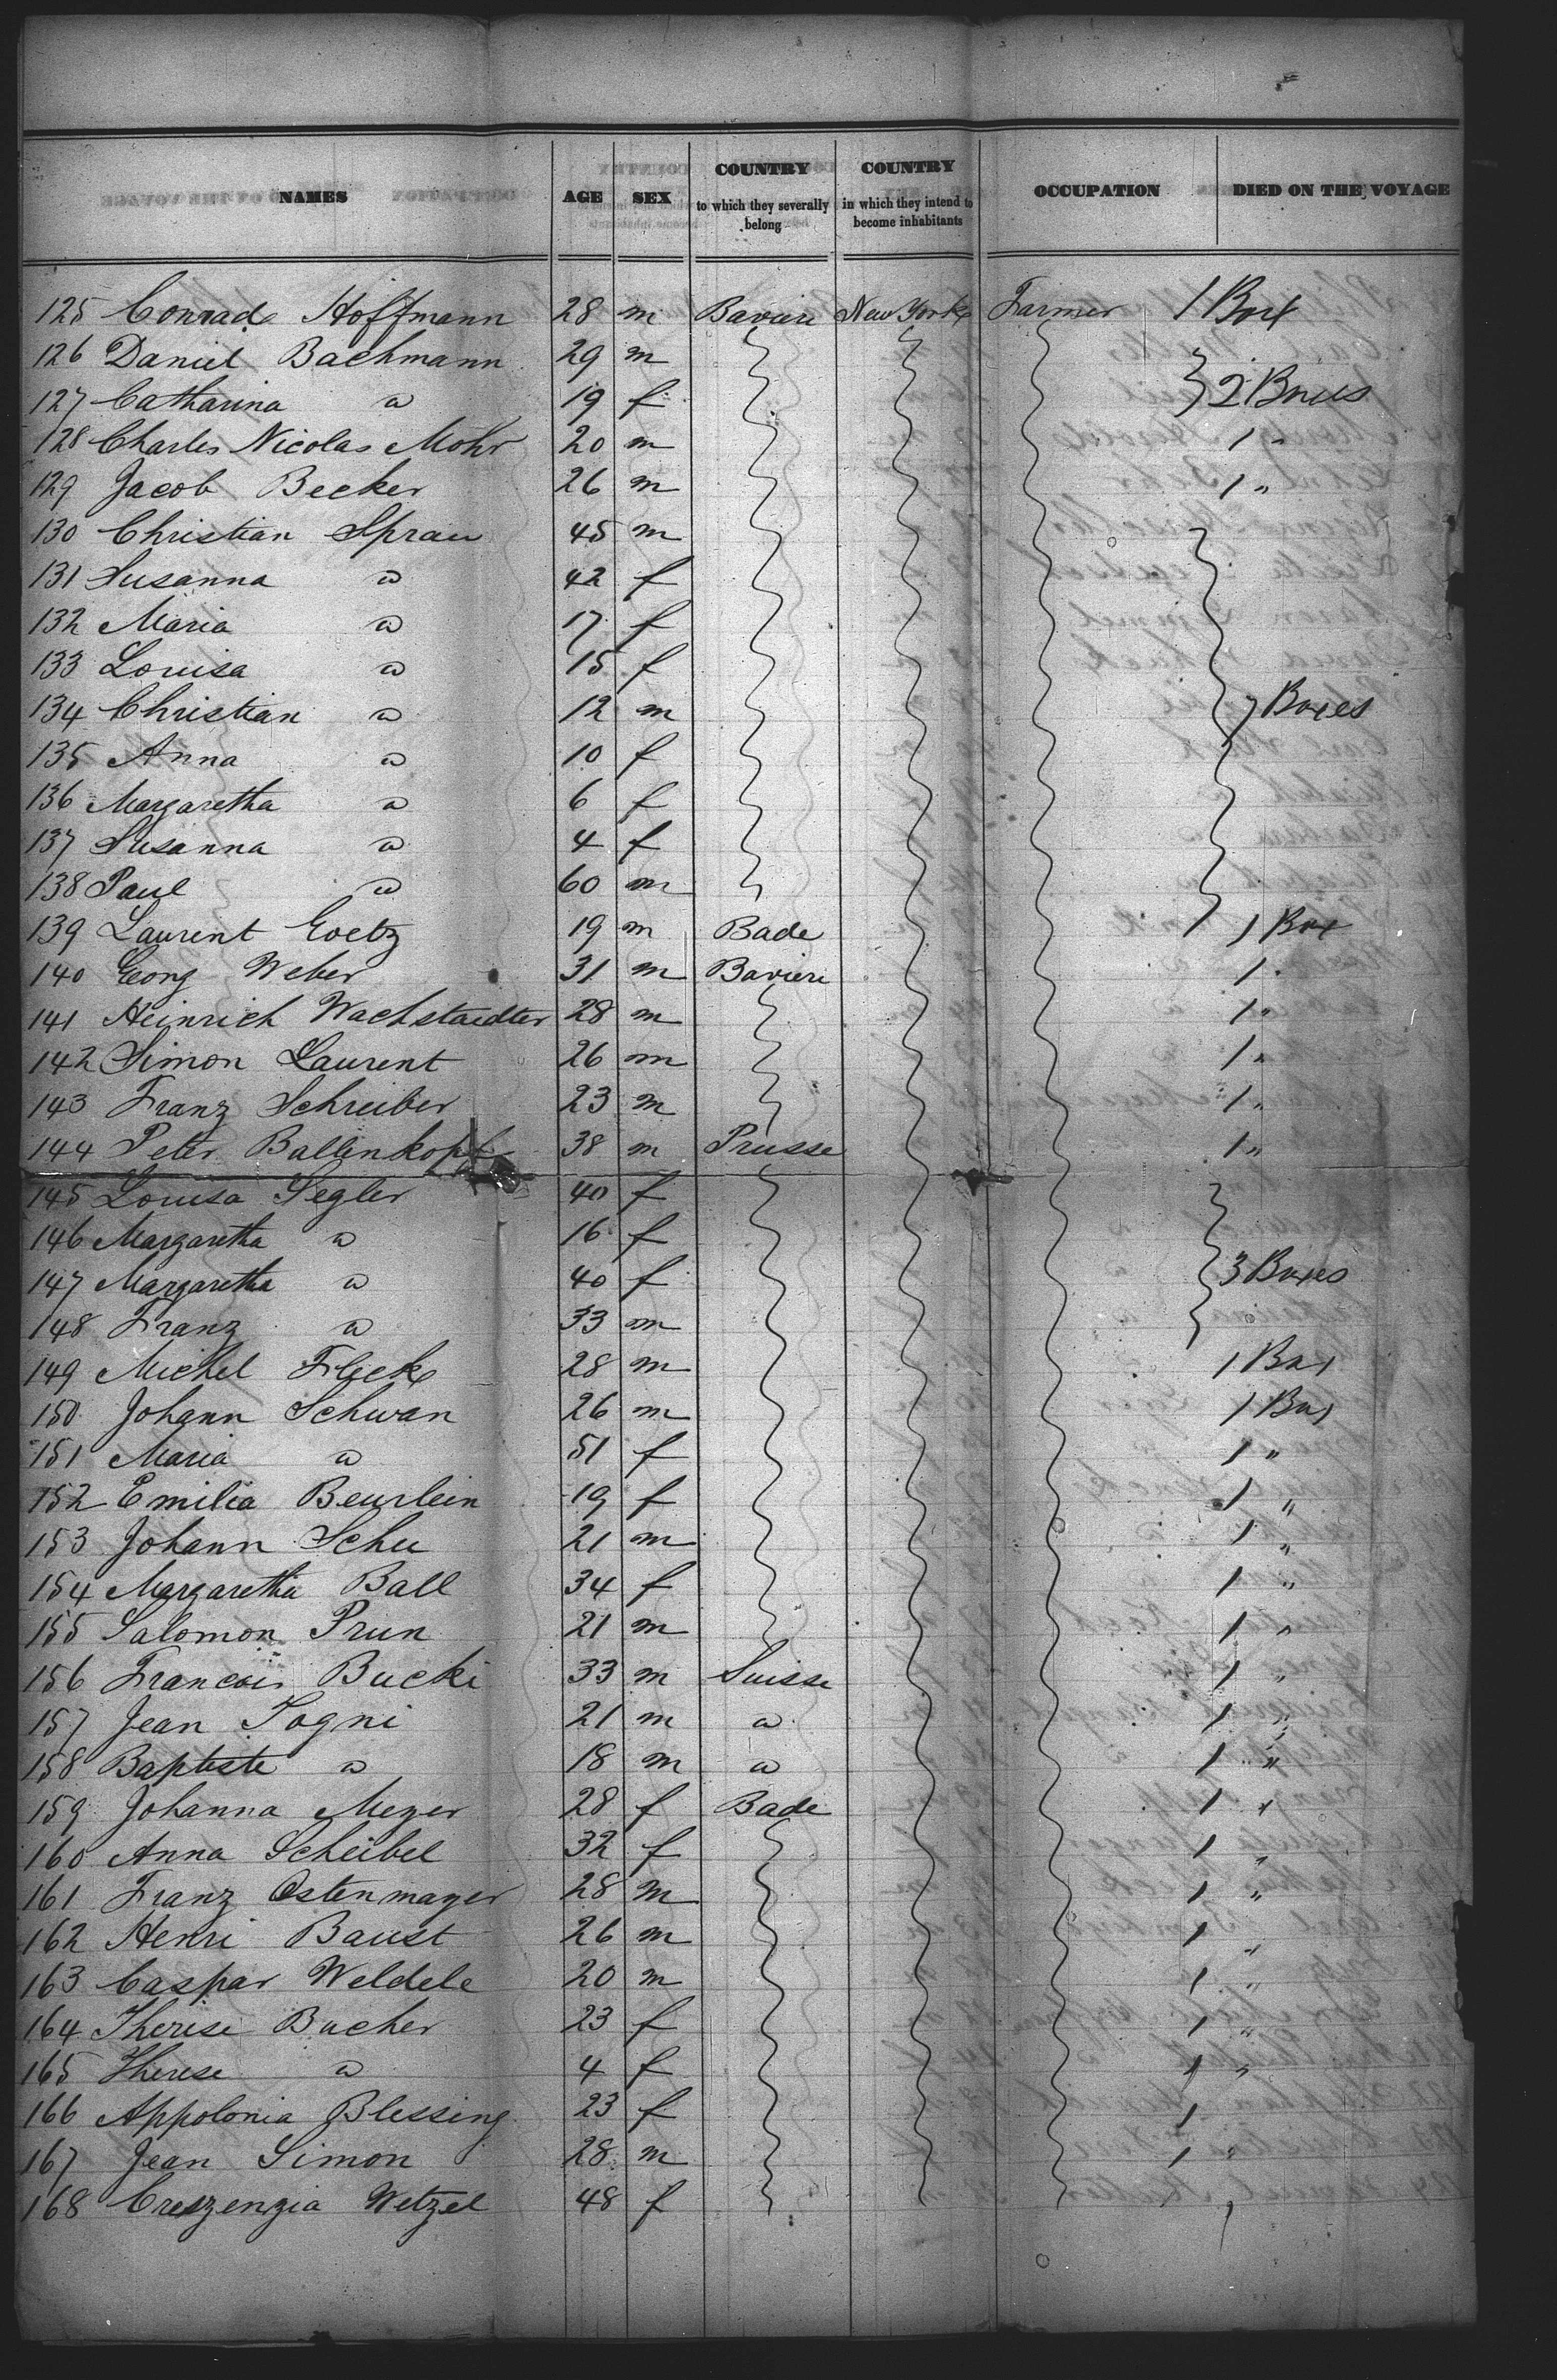 NAMES AGE SEX COUNTRY to which they severally belong COUNTRY in which they intend to become inhabitants OCCUPATION DIED ON THE VOYAGE
125 Conrad Hoffmann 28 m Baviere New York Farmer 1 Box
126 Daniel Bachmann 29 m
127 Catharina a 19 f 2 Boxes
128 Charles Nicolas Mohr 20 m 1 "
129 Jacob Becker 26 m 1 "
130 Christian Sprau 45 m
131 Susanna a 42 f
132 Maria a 17 f
133 Louisa a 15 f
134 Christian a 12 m 7 Boxes
135 Anna a 10 f
136 Margaretha a 6 f
137 Susanna a 4 f
138 Paul a 60 m
139 Laurent Goetz 19 m Bade 1 Box
140 Georg Weber 31 m Baviere 1 "
141 Heinrich Wachstaedter 28 m 1 "
142 Simon Laurent 26 m 1 "
143 Franz Schreiber 23 m 1 "
144 Peter Ballenkopf 38 m Prusse 1 "
145 Louisa Segler 40 f
146 Margaretha a 16 f
147 Margaretha a 40 f 3 Boxes
148 Franz a 33 m
149 Michel Fleck 28 m 1 Box
150 Johann Schwan 26 m 1 Box
151 Maria a 51 f 1 "
152 Emilia Beurlein 19 f 1 "
153 Johann Schu 21 m 1 "
154 Margaretha Ball 34 f 1 "
155 Salomon Prun 21 m 1 "
156 Francois Bucki 33 m Suisse 1 "
157 Jean Togni 21 m a 1 "
158 Baptiste a 18 m a 1 "
159 Johanna Meyer 28 f Bade 1 "
160 Anna Scheibel 32 f 1 "
161 Franz Ostenmayer 28 m 1 "
162 Henri Baust 26 m 1 "
163 Caspar Weldele 20 m 1 "
164 Therese Bucher 23 f 1 "
165 Therese a 4 f 1 "
166 Appolonia Blessing 23 f 1
167 Jean Simon 28 m 1 "
168 Creszenzia Wetzel 48 f 1